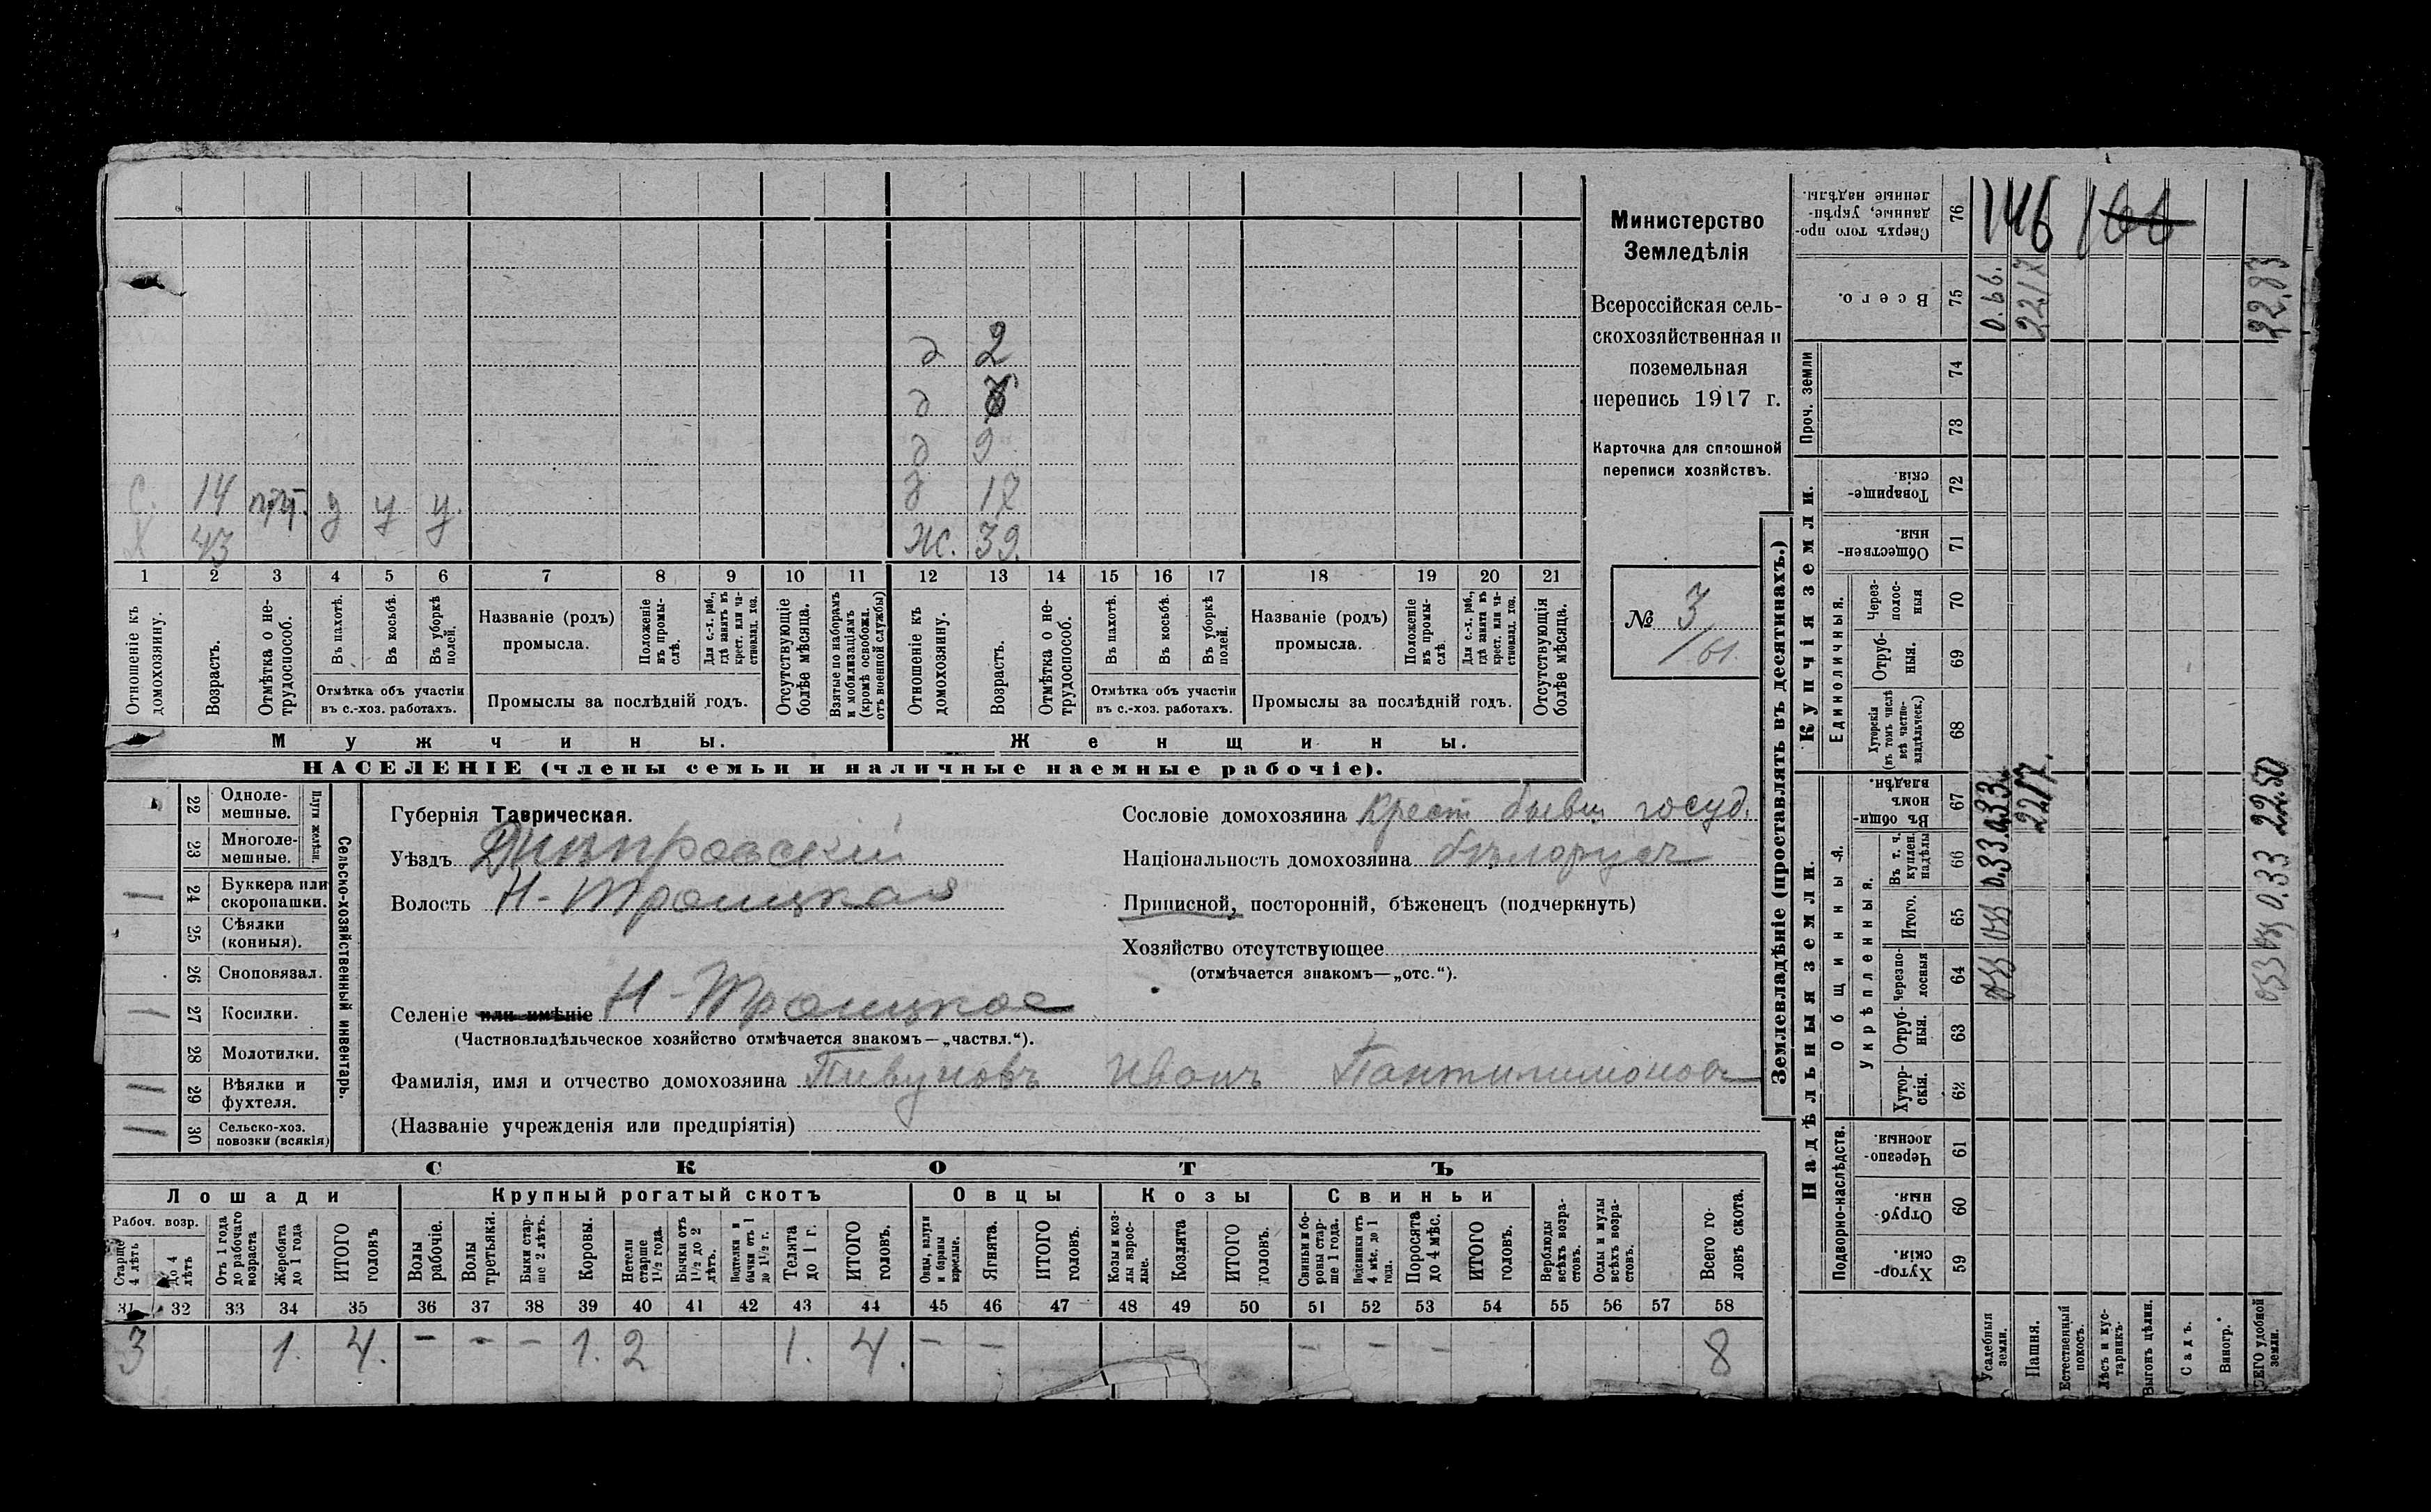 Министерство
Земледѣлія
Всероссійская сель-
скохозяйственная и
поземельная
перепись 1917 г.
Карточка для сплошной
переписи хозяйствъ.
№ 3
/61.
д 2
д
д 9
С. 14 д 17
Х 43 Ж. 39.
1 2 3 4 5 6 7 8 9 10 11 12 13 14 15 16 17 18 19 20 21
Отношеніе къ домохозяину.
Возрастъ.
Отмѣтка о не-трудоспособ.
Въ пахотѣ.
Въ косьбѣ.
Въ уборкѣ полей.
Отмѣтка объ участіи въ с.-хоз. работахъ.
Названіе (родъ) промысла.
Положеніе въ промы-слѣ.
Для с.-х. раб., гдѣ занятъ въ крест. или ча-стновлад. хоз.
Промыслы за послѣдній годъ.
Отсутствующіе болѣе мѣсяца.
Взятые по наборамъ и мобилизаціямъ (кромѣ освобожд. отъ военной службы)
Отношеніе къ домохозяину.
Возрастъ.
Отмѣтка о не-трудоспособ.
Въ пахотѣ.
Въ косьбѣ.
Въ уборкѣ полей.
Отмѣтка объ участіи въ с.-хоз. работахъ.
Названіе (родъ) промысла.
Положеніе въ промы-слѣ.
Для с.-х. раб., гдѣ занята въ крест. или ча-стновлад. хоз.
Промыслы за послѣдній годъ.
Отсутствующія болѣе мѣсяца.
Мужчины. Женщины.
НАСЕЛЕНІЕ (члены семьи и наличные наемные рабочіе).
Сельско-хозяйственный инвентарь.
Плуги желѣзн.
22 Одноле-мешные.
23 Многоле-мешные.
24 Буккера или скоропашки.
25 Сѣялки (конныя).
26 Сноповязал.
27 Косилки.
28 Молотилки.
29 Вѣялки и фухтеля.
30 Сельско-хоз. повозки (всякія)
Губернія Таврическая.
Уѣздъ Днѣпровскій
Волость Н-Троицкая
Селеніе или имѣніе Н-Троицкое
(Частновладѣльческое хозяйство отмѣчается знакомъ—„частвл.“).
Фамилія, имя и отчество домохозяина Пивуновъ Иванъ Пантилимонов
(Названіе учрежденія или предпріятія)
Сословіе домохозяина Крест бывш госуд.
Національность домохозяина бѣлорусъ
Приписной, посторонній, бѣженецъ (подчеркнуть)
Хозяйство отсутствующее
(отмѣчается знакомъ—„отс.“).
СКОТЪ
Лошади Крупный рогатый скотъ Овцы Козы Свиньи
Рабоч. возр.
Старше 4 лѣтъ
до 4 лѣтъ
Отъ 1 года до рабочаго возраста
Жеребята до 1 года
ИТОГО головъ
Волы рабочіе.
Волы третьяки.
Быки стар-ше 2 лѣтъ.
Коровы.
Нетели старше 1½ года.
Бычки отъ 1½ до 2 лѣтъ.
Подтелки и бычки отъ 1 до 1½ г.
Телята до 1 г.
ИТОГО головъ.
Овцы, валухи и бараны взрослые.
Ягнята.
ИТОГО головъ.
Козы и коз-лы взрос-лые.
Козлята
ИТОГО головъ.
Свиньи и бо-ровы стар-ше 1 года.
Подсвинки отъ 4 мѣс. до 1 года.
Поросята до 4 мѣс.
ИТОГО головъ.
Верблюды всѣхъ возра-стовъ.
Ослы и мулы всѣхъ возра-стовъ.
Всего го-ловъ скота.
31 32 33 34 35 36 37 38 39 40 41 42 43 44 45 46 47 48 49 50 51 52 53 54 55 56 57 58
3 1. 4. - - - 1. 2 1. 4. - - - - - 8
Землевладѣніе (проставлять въ десятинахъ.)
Купчія земли.
Надѣльныя земли.
Проч. земли
Единоличныя.
Общинныя.
Укрѣпленныя.
Подворно-наслѣдств.
76 Сверхъ того про-данные, укрѣп-ленные надѣлы.
75 Всего.
74
73
72 Товарище-скія.
71 Обществен-ныя.
70 Через-полос-ныя
69 Отруб-ныя.
68 Хуторскія (въ томъ числѣ всѣ частно-владѣльческ.)
67 Въ общи-номъ владѣн.
66 Въ т. ч. куплен. надѣлы
65 Итого.
64 Черезпо-лосныя
63 Отруб-ныя.
62 Хутор-скія.
61 Черезпо-лосныя.
60 Отруб-ныя.
59 Хутор-скія.
Усадебныя земли.
Пашня.
Естественный покосъ.
Лѣсъ и кус-тарникъ.
Выгонъ цѣлин.
Садъ.
Виногр.
ВСЕГО удобной земли.
146 166
0.66.
2217
22.83
0.33
2217.
0.33 22.50